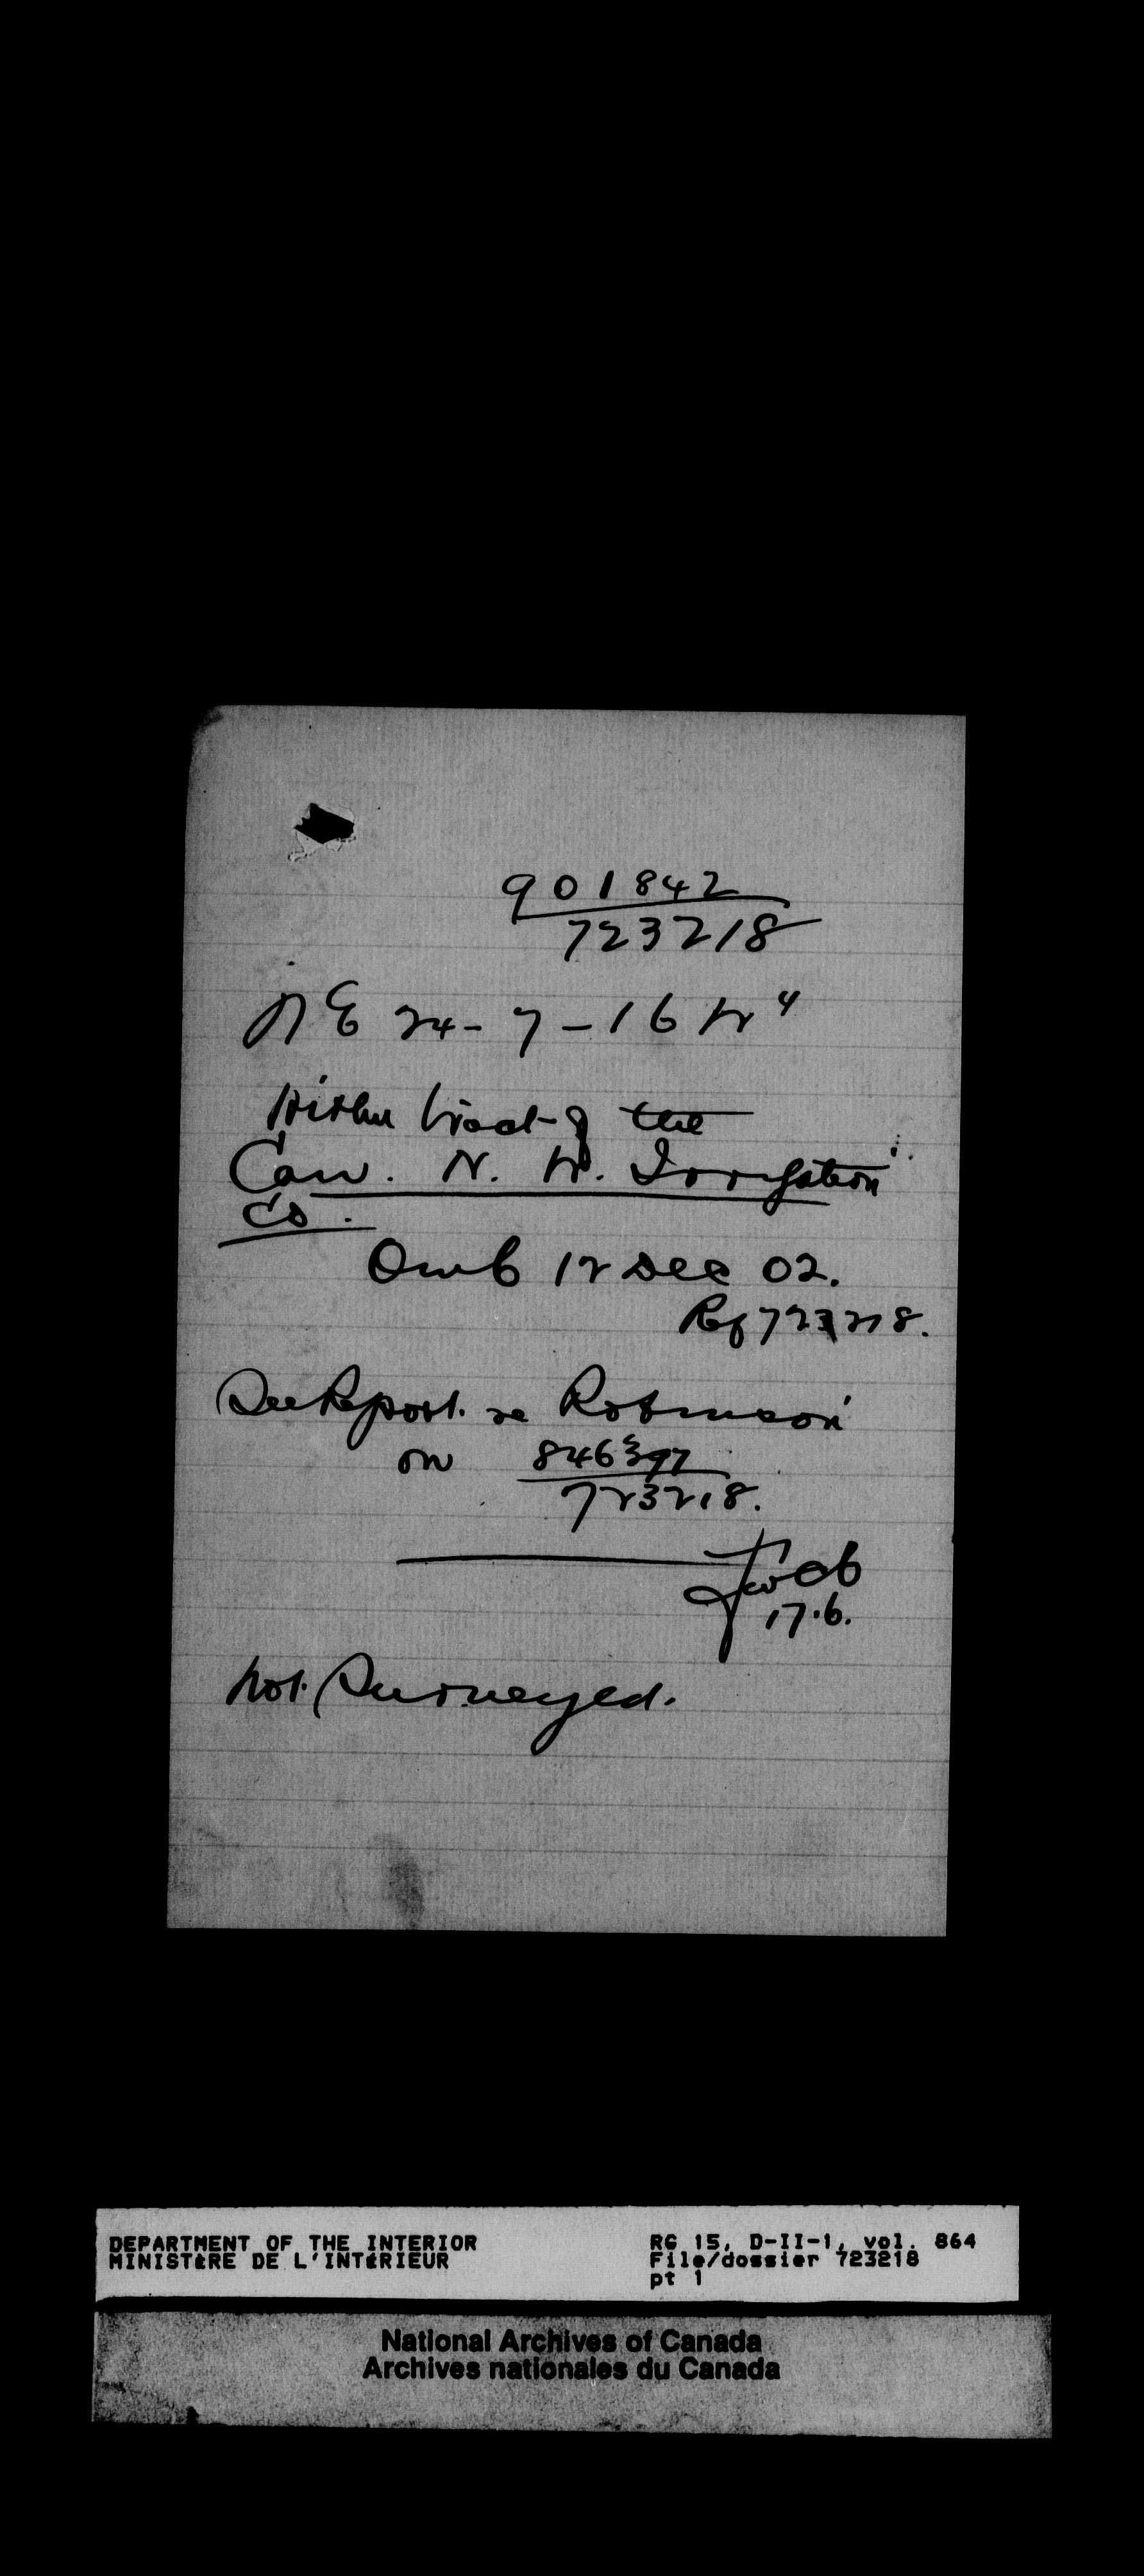 901842
723218
NE 24-7-16 W 4
Within tract of the
Can. N. W. Irrigation
Co.
12 Dec 02.
Ref 723218.
See Report re Robinson
on 846397
723218.
17.6.
Not Surveyed.
DEPARTMENT OF THE INTERIOR
MINISTÈRE DE L'INTÉRIEUR
RG 15, D-II-1, vol. 864
File/dossier 723218
pt 1
National Archives of Canada
Archives nationales du Canada